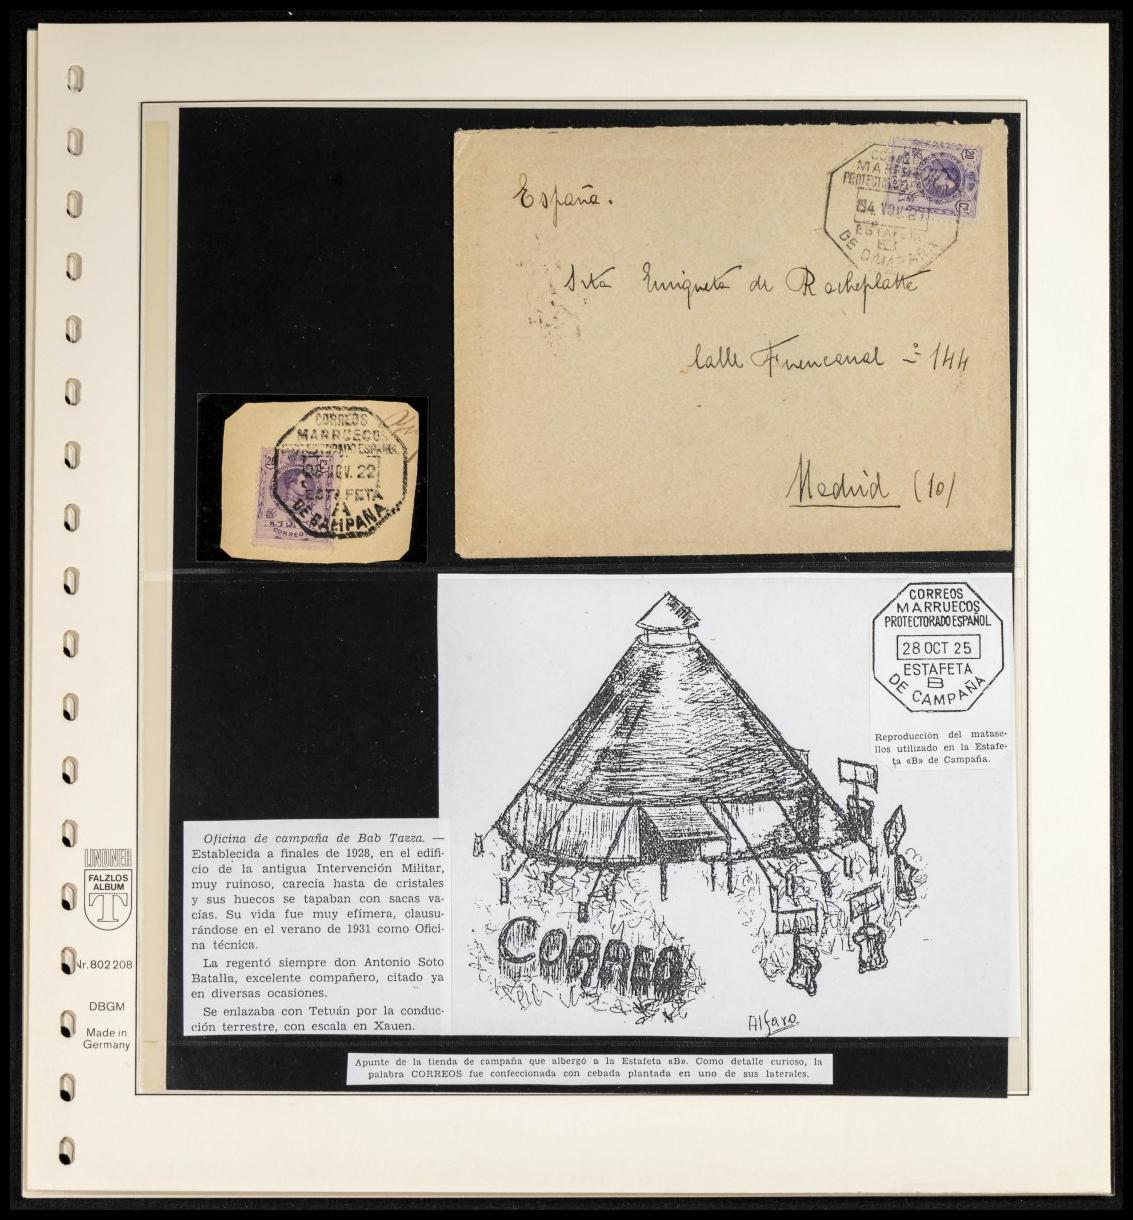 España.
20 Cs
CORREOS
MARRUECOS
PROTECTORADO ESPAÑOL
ESTAFETA
B
DE CAMPAÑA
Srta Enriqueta de Rocheplatte
Calle Fuencarral nº 144
Madrid (10)
CORREOS
MARRUECOS
PROTECTORADO ESPAÑOL
NOV. 22
ESTAFETA
A
DE CAMPAÑA
20 Cs
CORREO
CORREOS
MARRUECOS
PROTECTORADO ESPAÑOL
28 OCT 25
ESTAFETA
B
DE CAMPAÑA
Reproducción del matase-
llos utilizado en la Estafe-
ta «B» de Campaña.
CORREO
Alfaro
Oficina de campaña de Bab Tazza. —
Establecida a finales de 1928, en el edifi-
cio de la antigua Intervención Militar,
muy ruinoso, carecía hasta de cristales
y sus huecos se tapaban con sacas va-
cías. Su vida fue muy efímera, clausu-
rándose en el verano de 1931 como Ofici-
na técnica.
La regentó siempre don Antonio Soto
Batalla, excelente compañero, citado ya
en diversas ocasiones.
Se enlazaba con Tetuán por la conduc-
ción terrestre, con escala en Xauen.
Apunte de la tienda de campaña que albergó a la Estafeta «B». Como detalle curioso, la
palabra CORREOS fue confeccionada con cebada plantada en uno de sus laterales.
LINDNER
FALZLOS
ALBUM
T
Nr. 802 208
DBGM
Made in
Germany